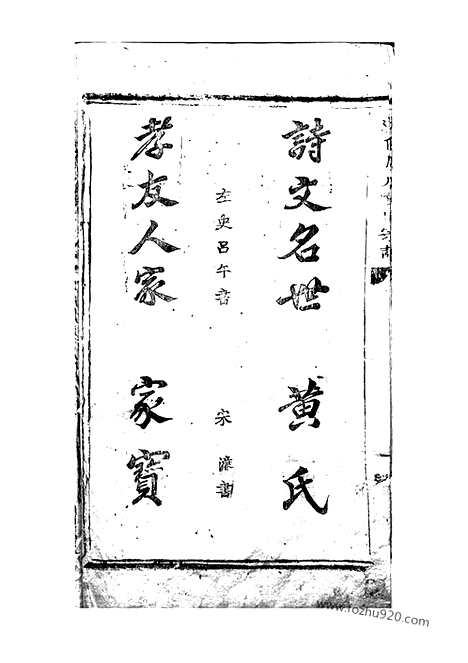 詩文名世 黃氏
左史呂午書 宋濂書
孝友人家 家寶
www.fozhu920.com